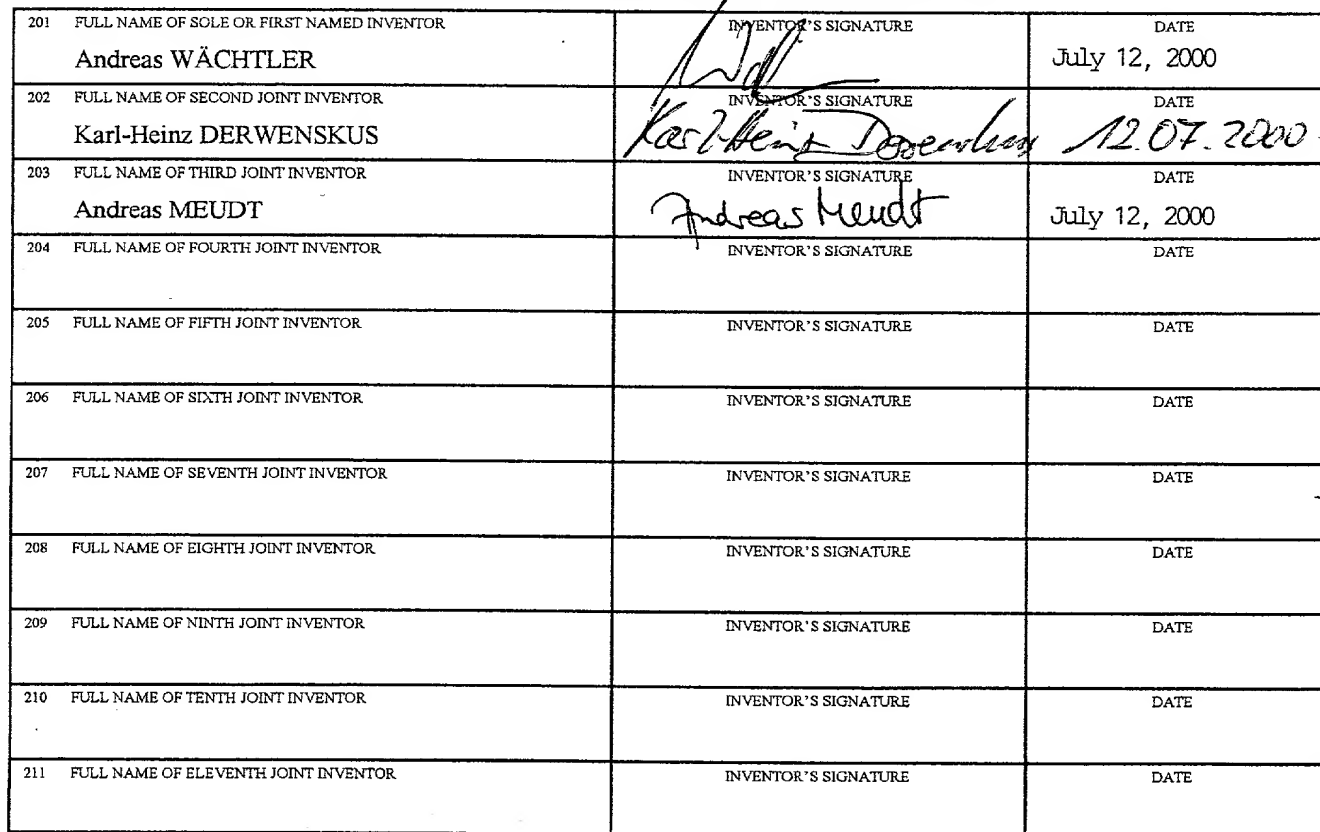 201 FULL NAME OF SOLE OR FIRST NAMED INVENTOR INVENTOR'S SIGNATURE DATE
Andreas WÄCHTLER July 12, 2000
202 FULL NAME OF SECOND JOINT INVENTOR INVENTOR'S SIGNATURE DATE
Karl-Heinz DERWENSKUS Karl-Heinz 12.07.2000
203 FULL NAME OF THIRD JOINT INVENTOR INVENTOR'S SIGNATURE DATE
Andreas MEUDT Andreas Meudt July 12, 2000
204 FULL NAME OF FOURTH JOINT INVENTOR INVENTOR'S SIGNATURE DATE
205 FULL NAME OF FIFTH JOINT INVENTOR INVENTOR'S SIGNATURE DATE
206 FULL NAME OF SIXTH JOINT INVENTOR INVENTOR'S SIGNATURE DATE
207 FULL NAME OF SEVENTH JOINT INVENTOR INVENTOR'S SIGNATURE DATE
208 FULL NAME OF EIGHTH JOINT INVENTOR INVENTOR'S SIGNATURE DATE
209 FULL NAME OF NINTH JOINT INVENTOR INVENTOR'S SIGNATURE DATE
210 FULL NAME OF TENTH JOINT INVENTOR INVENTOR'S SIGNATURE DATE
211 FULL NAME OF ELEVENTH JOINT INVENTOR INVENTOR'S SIGNATURE DATE